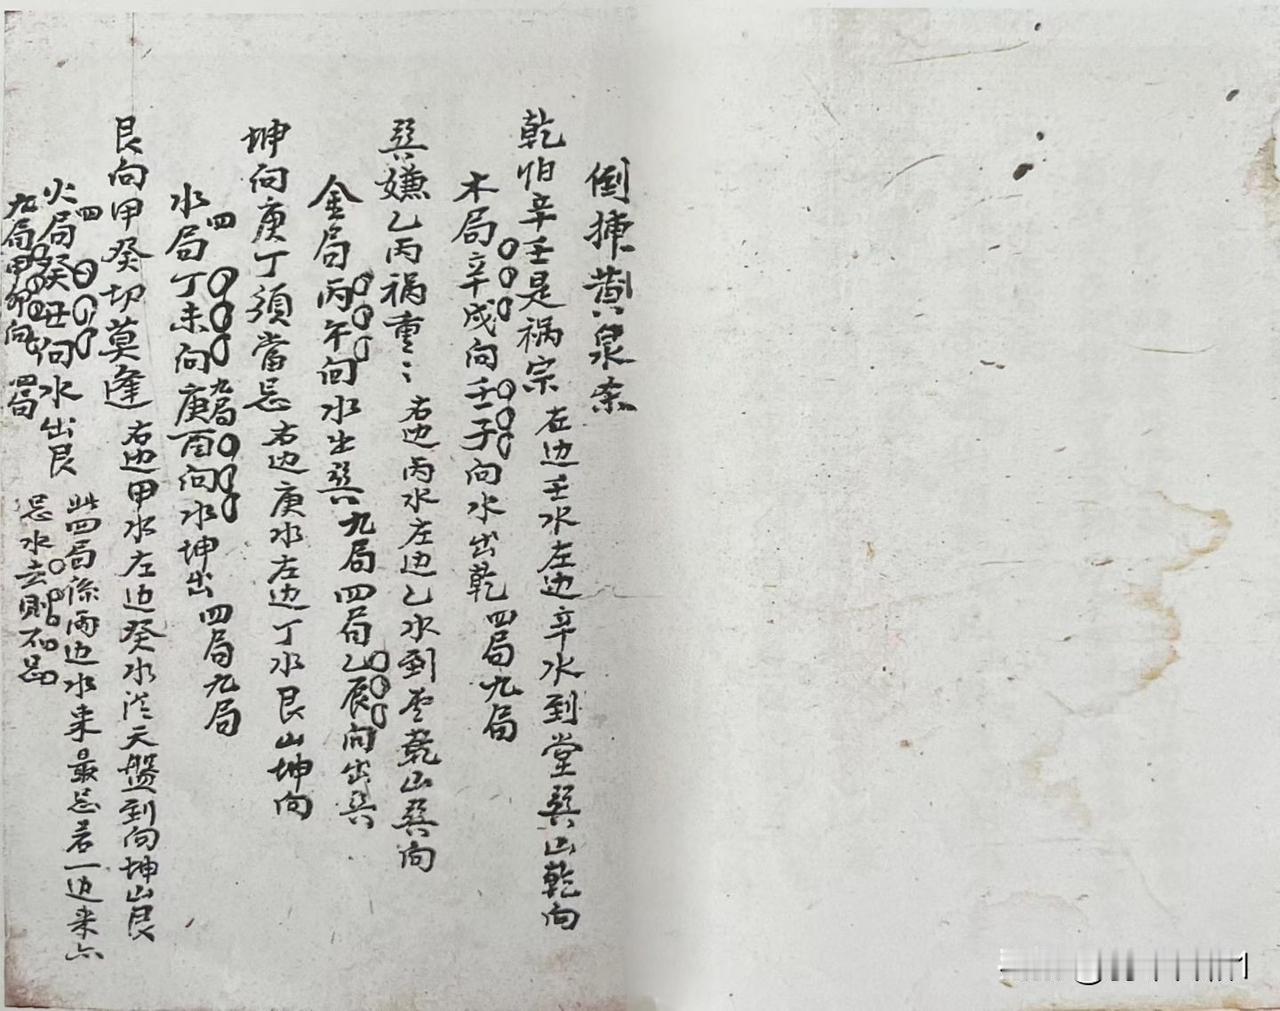 倒捶黄泉杀
乾怕辛壬是祸宗
右边壬水左边辛水到堂巽山乾向
木局辛戌向壬子向水出乾
四局九局
巽嫌乙丙祸重〻
右边丙水左边乙水到堂乾山巽向
金局丙午向水出巽九局四局乙辰向出巽
坤向庚丁须當忌
右边庚水左边丁水艮山坤向
水局丁未向庚酉向水坤出
四
九局
四局九局
艮向甲癸切莫逢
右边甲水左边癸水天盤到向坤山艮
火局癸丑向水出艮
四
九局甲卯向
四局
此四局係两边水来最忌若一边来
忌水去則不忌